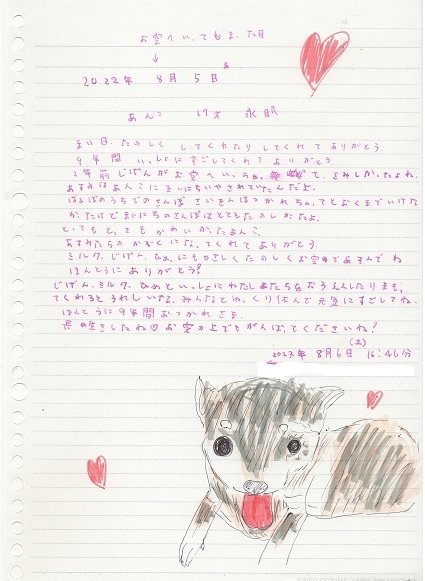 お空へいってもまった日
↓
2022年 8月 5日
あんこ 17才 永眠
まい日たのしくしてくれたりしてくれてありがとう。
9年間いっしょにすごしてくれてありがとう。
2年前じげんがお空へいっちゃって、さみしかったよね。
あすみはあんこにまいにちいやされていたんだよ。
はるばるのうちでのさんぽさいきんはつかれちゃってとおくまでいけな
かったけどまいにちのさんぽはとてもたのしかったよ。
とってもとってもかわいかったよあんこ。
あすみたちのかぞくになってくれてありがとう。
ミルク、じげん、ひめにもやさしくたのしくお空の上であそんでね
ほんとうにありがとう!
じげん、ミルク、ひめといっしょにわたしまたちをおうえんしたりまもっ
てくれるとうれしいな。みんなとゆっくり休んで元気にすごしてね。
ほんとうに9年間おつかれさま。
長生きしたね♡お空の上でもがんばってくださいね!
(土)
2022年 8月6日 16:46分